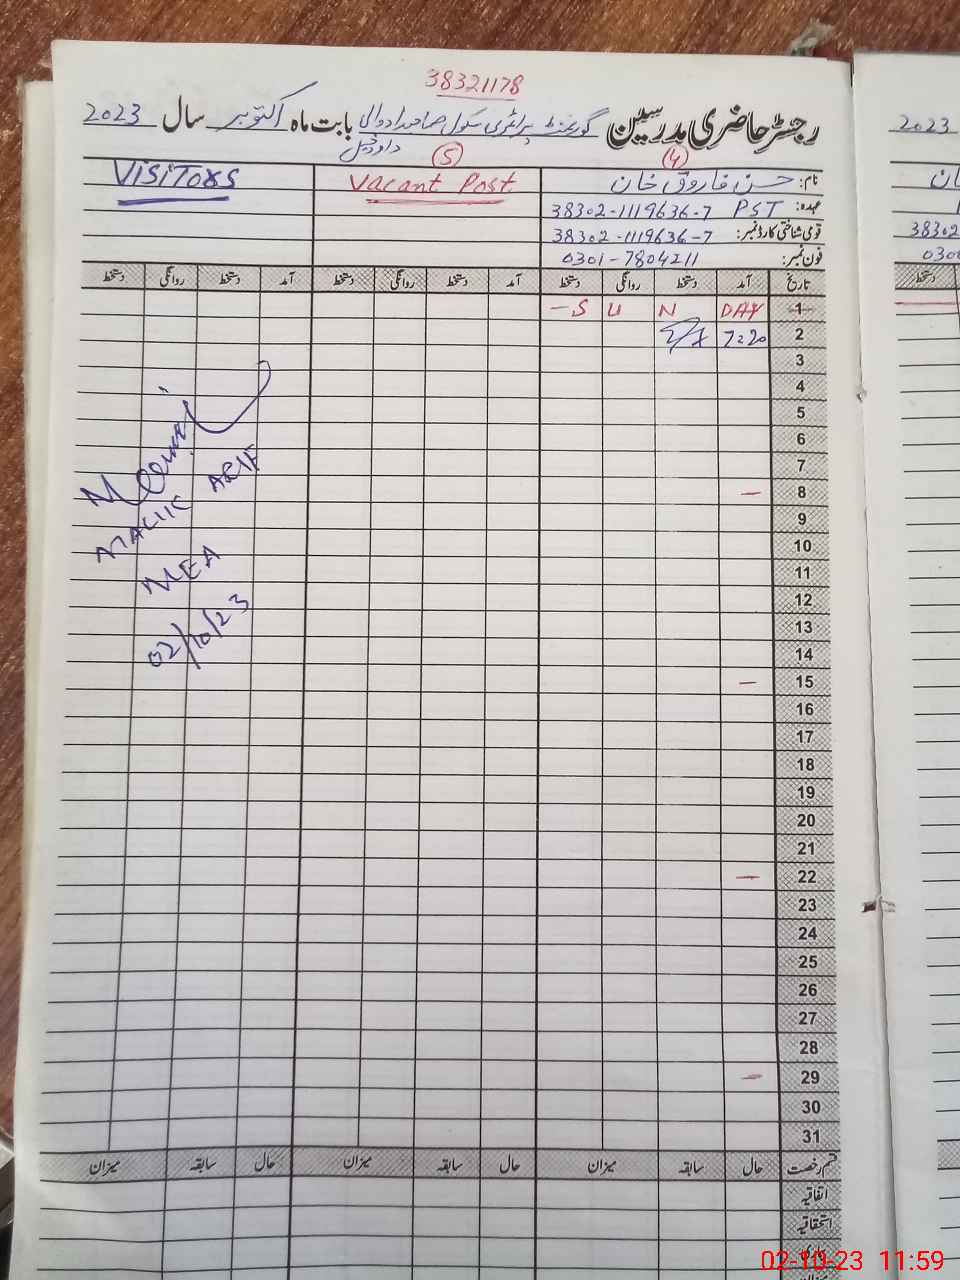 38321178
رجسٹر حاضری مدرسین گورنمنٹ پرائمری سکول بابت ماہ اکتوبر سال 2023
داؤدخیل
(4) (5)
نام: حسن فاروق خان
Vacant Post
VISITORS
عہدہ: PST 38302-1119636-7
قومی شناختی کارڈ نمبر: 38302-1119636-7
فون نمبر: 0301-7804211
تاریخ آمد دستخط روانگی دستخط آمد دستخط روانگی دستخط آمد دستخط روانگی دستخط
1 SUN DAY
2 7:20
3
4
5
6
7
8 —
9
10
11
12
13
14
15 —
16
17
18
19
20
21
22 —
23
24
25
26
27
28
29 —
30
31
MALIK ARIF
MEA
02/10/23
قسم رخصت حال سابقہ میزان حال سابقہ میزان حال سابقہ میزان
اتفاقیہ
استحقاقیہ
2023
38302
0300
دستخط
02-10-23 11:59